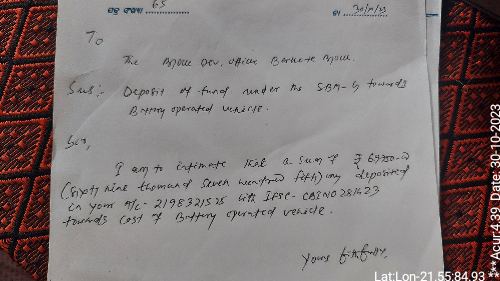 ପତ୍ର ସଂଖ୍ୟା 65 ତା 30/10/23
To
The Block Dev. officer Barkote Block.
Sub:- Deposit of fund under the SBM-G towards
Battery operated vehicle.
Sir,
I am to intimate that a sum of ₹ 69750-00
(Sixty nine thousand seven hundred fifty) may deposited
in your A/C- 2198321525 with IFSC- CBIN0281423
towards cost of Battery operated vehicle.
Yours faithfully,
Lat:Lon-21.55:84.93
***Acur:4.39 Date: 30-10-2023